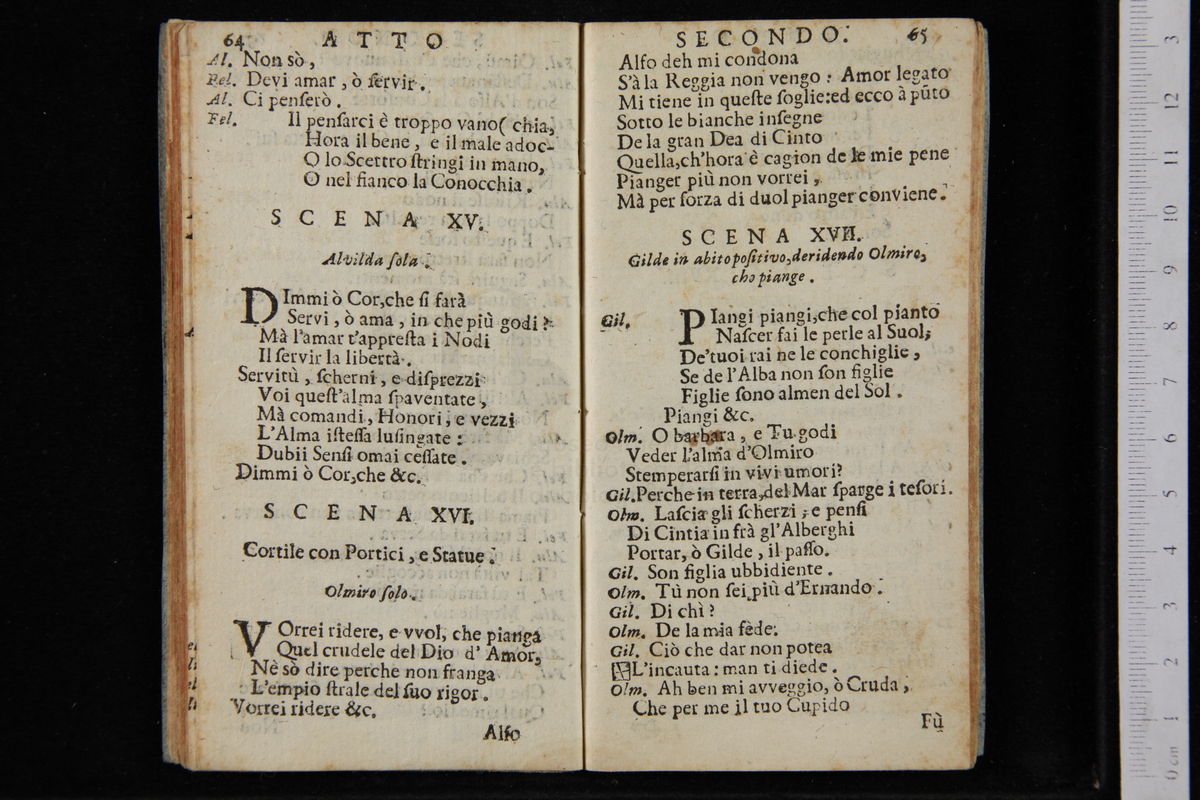 64 ATTO
Al. Non sò,
Fel. Devi amar, ò ſervir.
Al. Ci penſerò.
Fel. Il penſarci è troppo vano ( chia,
Hora il bene, e il male adoc-
O lo Scettro ſtringi in mano,
O nel fianco la Conocchia.
SCENA XV.
Alvilda ſola.
DImmi ò Cor, che ſi farà
Servi, ò ama, in che più godi?
Mà l'amar t'appreſta i Nodi
Il ſervir la libertà.
Servitù, ſcherni, e diſprezzi
Voi queſt'alma ſpaventate,
Mà comandi, Honori, e vezzi
L'Alma iſteſſa luſingate:
Dubii Senſi omai ceſſate.
Dimmi ò Cor, che &c.
SCENA XVI.
Cortile con Portici, e Statue.
Olmiro ſolo.
VOrrei ridere, e vvol, che pianga
Quel crudele del Dio d' Amor,
Nè sò dire perche non franga
L'empio ſtrale del ſuo rigor.
Vorrei ridere &c.
Alfo
SECONDO. 65
Alfo deh mi condona
S'à la Reggia non vengo: Amor legato
Mi tiene in queſte ſoglie: ed ecco à pũto
Sotto le bianche inſegne
De la gran Dea di Cinto
Quella, ch'hora è cagion de le mie pene
Pianger più non vorrei,
Mà per forza di duol pianger conviene.
SCENA XVII.
Gilde in abito poſitivo, deridendo Olmiro,
che piange.
Gil. PIangi piangi, che col pianto
Naſcer fai le perle al Suol;
De'tuoi rai ne le conchiglie,
Se de l'Alba non ſon figlie
Figlie ſono almen del Sol.
Piangi &c.
Olm. O barbara, e Tu godi
Veder l'alma d'Olmiro
Stemperarſi in vivi umori?
Gil. Perche in terra, del Mar ſparge i teſori.
Olm. Laſcia gli ſcherzi, e penſi
Di Cintia in frà gl'Alberghi
Portar, ò Gilde, il paſſo.
Gil. Son figlia ubbidiente.
Olm. Tù non ſei più d'Ernando.
Gil. Di chì?
Olm. De la mia fède.
Gil. Ciò che dar non potea
L'incauta: man ti diede.
Olm. Ah ben mi avveggio, ò Cruda,
Che per me il tuo Cupido
Fù